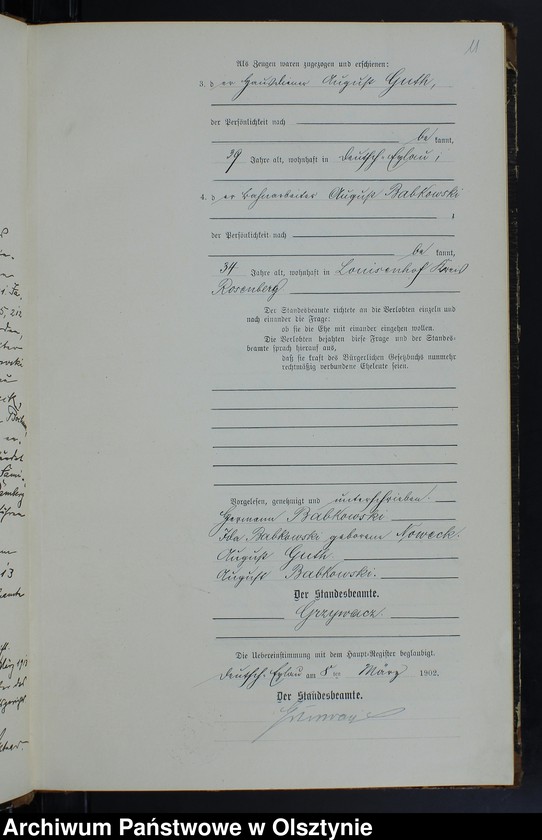 11
Als Zeugen waren zugezogen und erschienen:
3. der Hausdiener August Guth,
der Persönlichkeit nach
be kannt,
39 Jahre alt, wohnhaft in Deutsch-Eylau;
4. der Bahnarbeiter August Babkowski
,
der Persönlichkeit nach
be kannt,
34 Jahre alt, wohnhaft in Louisenhof Kreis
Rosenberg
Der Standesbeamte richtete an die Verlobten einzeln und
nach einander die Frage:
ob sie die Ehe mit einander eingehen wollen.
Die Verlobten bejahten diese Frage und der Standes-
beamte sprach hierauf aus,
daß sie kraft des Bürgerlichen Gesetzbuchs nunmehr
rechtmäßig verbundene Eheleute seien.
Vorgelesen, genehmigt und unterschrieben.
Hermann Babkowski
Ida Babkowski geborene Noweck.
August Guth
August Babkowski.
Der Standesbeamte.
Grzywacz
Die Uebereinstimmung mit dem Haupt-Register beglaubigt.
Deutsch-Eylau am 8 ten März 1902.
Der Standesbeamte.
Archiwum Państwowe w Olsztynie